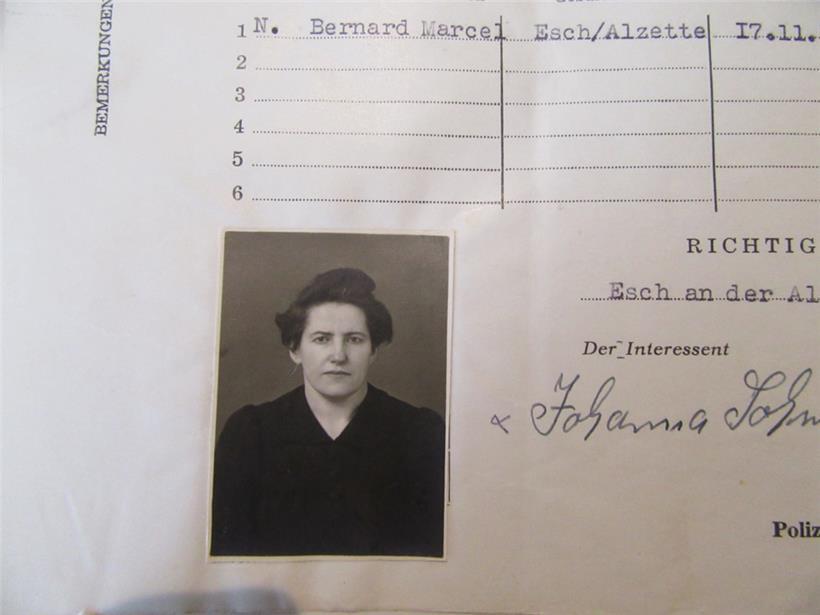 BEMERKUNGEN
1 N. Bernard Marcel Esch/Alzette 17.11.
2
3
4
5
6
RICHTIG
Esch an der Al
Der Interessent
x Johanna
Poliz